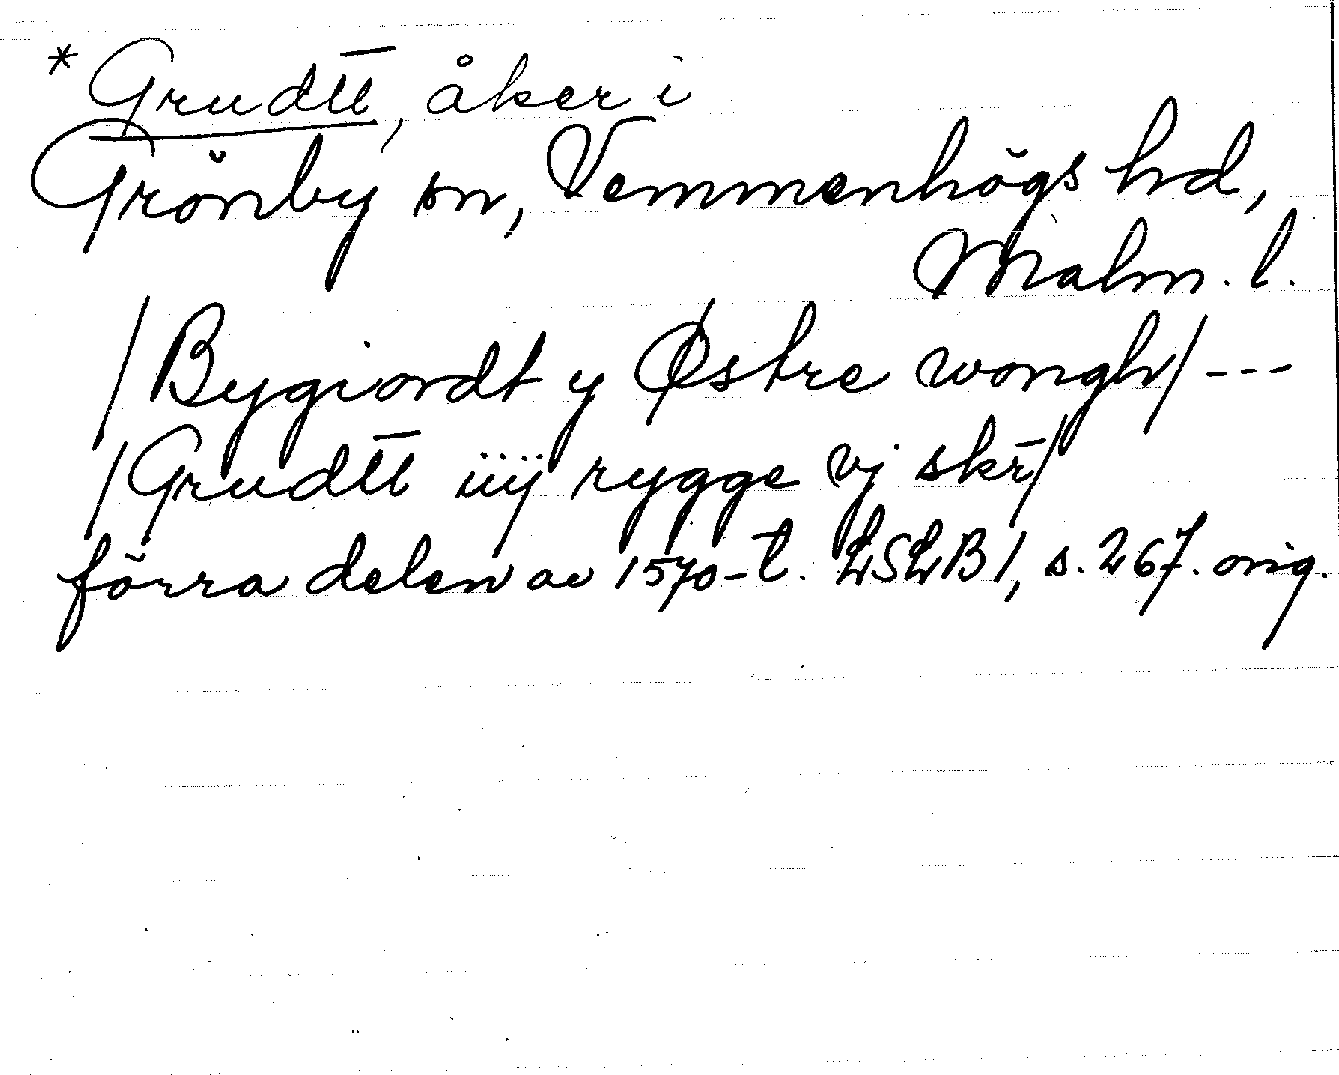 * Grudtt̅, åker i
Grönby sn, Vemmenhögs hd,
Malm. l.
/Bygiordt y Østre wongh/ ---
/Grudtt̅ iiij rygge vj skr̅/
förra delen av 1570-t. LSLB 1, s. 267. orig.